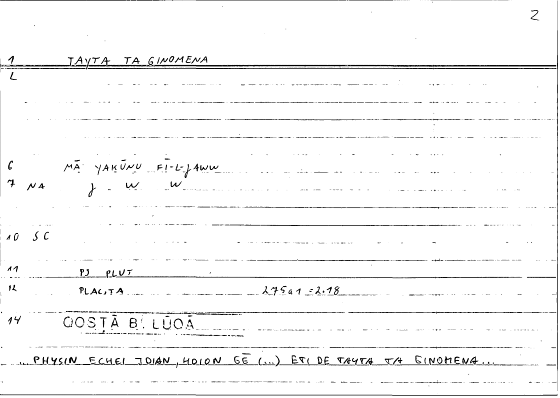 2
1 TAYTA TA GINOMENA
L
6 MĀ YAKŪNU FĪ-L-ǦAWW
7 NA ǧ W W
10 SC
11 PJ PLUT
12 PLACITA 275a1 = 2.18
14 QOSṬĀ B. LŪQĀ
... PHYSIN ECHEI IDIAN, HOION GĒ (...) ETI DE TAYTA TA GINOMENA...